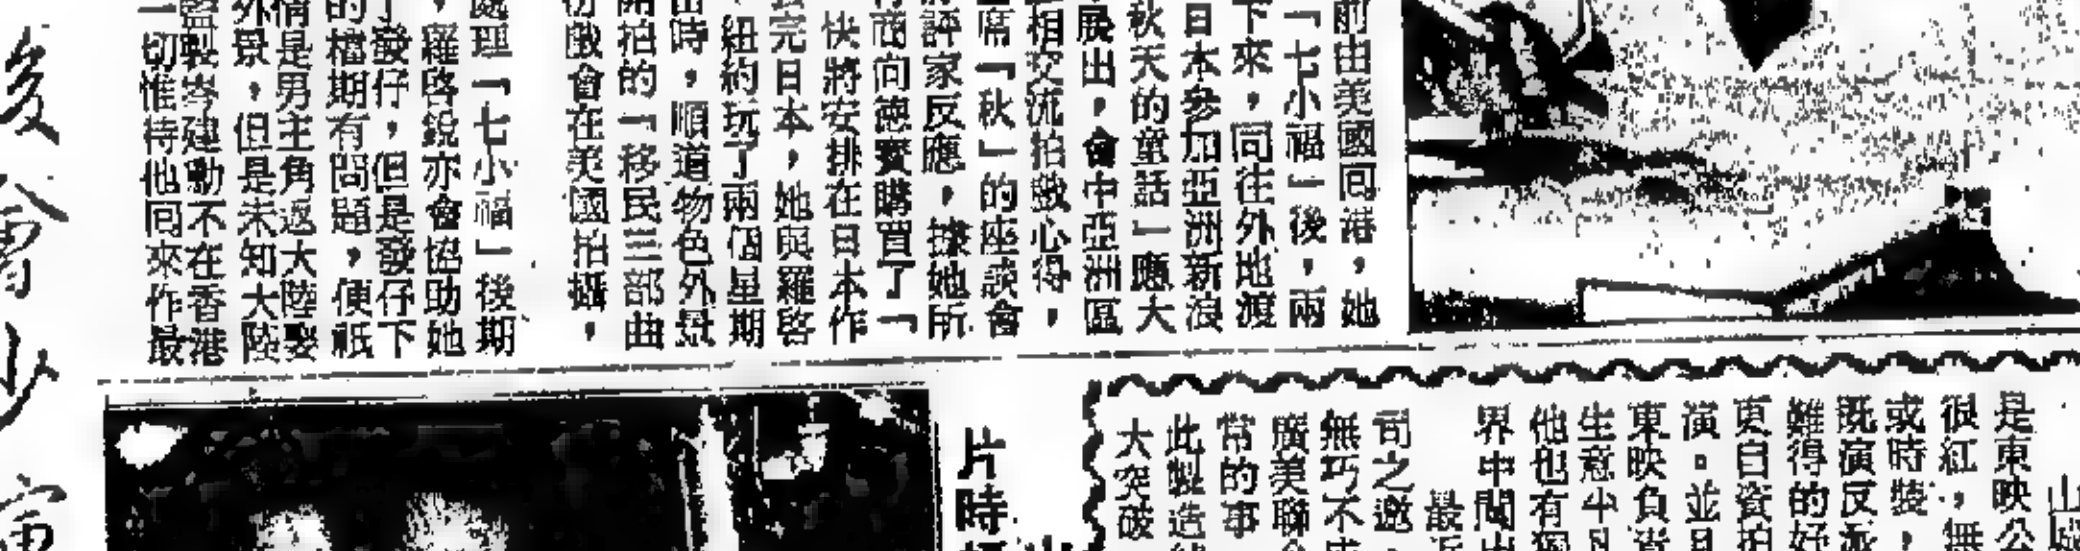 前由美國回港，她
「七小福」後，兩
下來，同往外地渡
日本參加亞洲新浪
秋天的童話」應大
展出，會中亞洲區
相交流拍戲心得，
席「秋」的座談會
評家反應，據她所
商向德寶購買了「
快將安排在日本作
完日本，她與羅啓
紐約玩了兩個星期
時，順道物色外景
開拍的「移民三部曲
會在美國拍攝，
處理「七小福」後期
，羅啓銳亦會協助她
了發仔，但是發仔下
的檔期有問題，便祇
情是男主角返大陸娶
外景，但是未知大陸
監製岑建勳不在香港
一切惟待他回來作最
是東映公
很紅，無
或時裝，
既演反派
難得的好
更自資拍
演。並且
東映負責
生意半月
他也有獨
界中聞出
最近
司之邀，
無巧不成
廣美聯合
常的事
此製造
大突破
片時
後會少